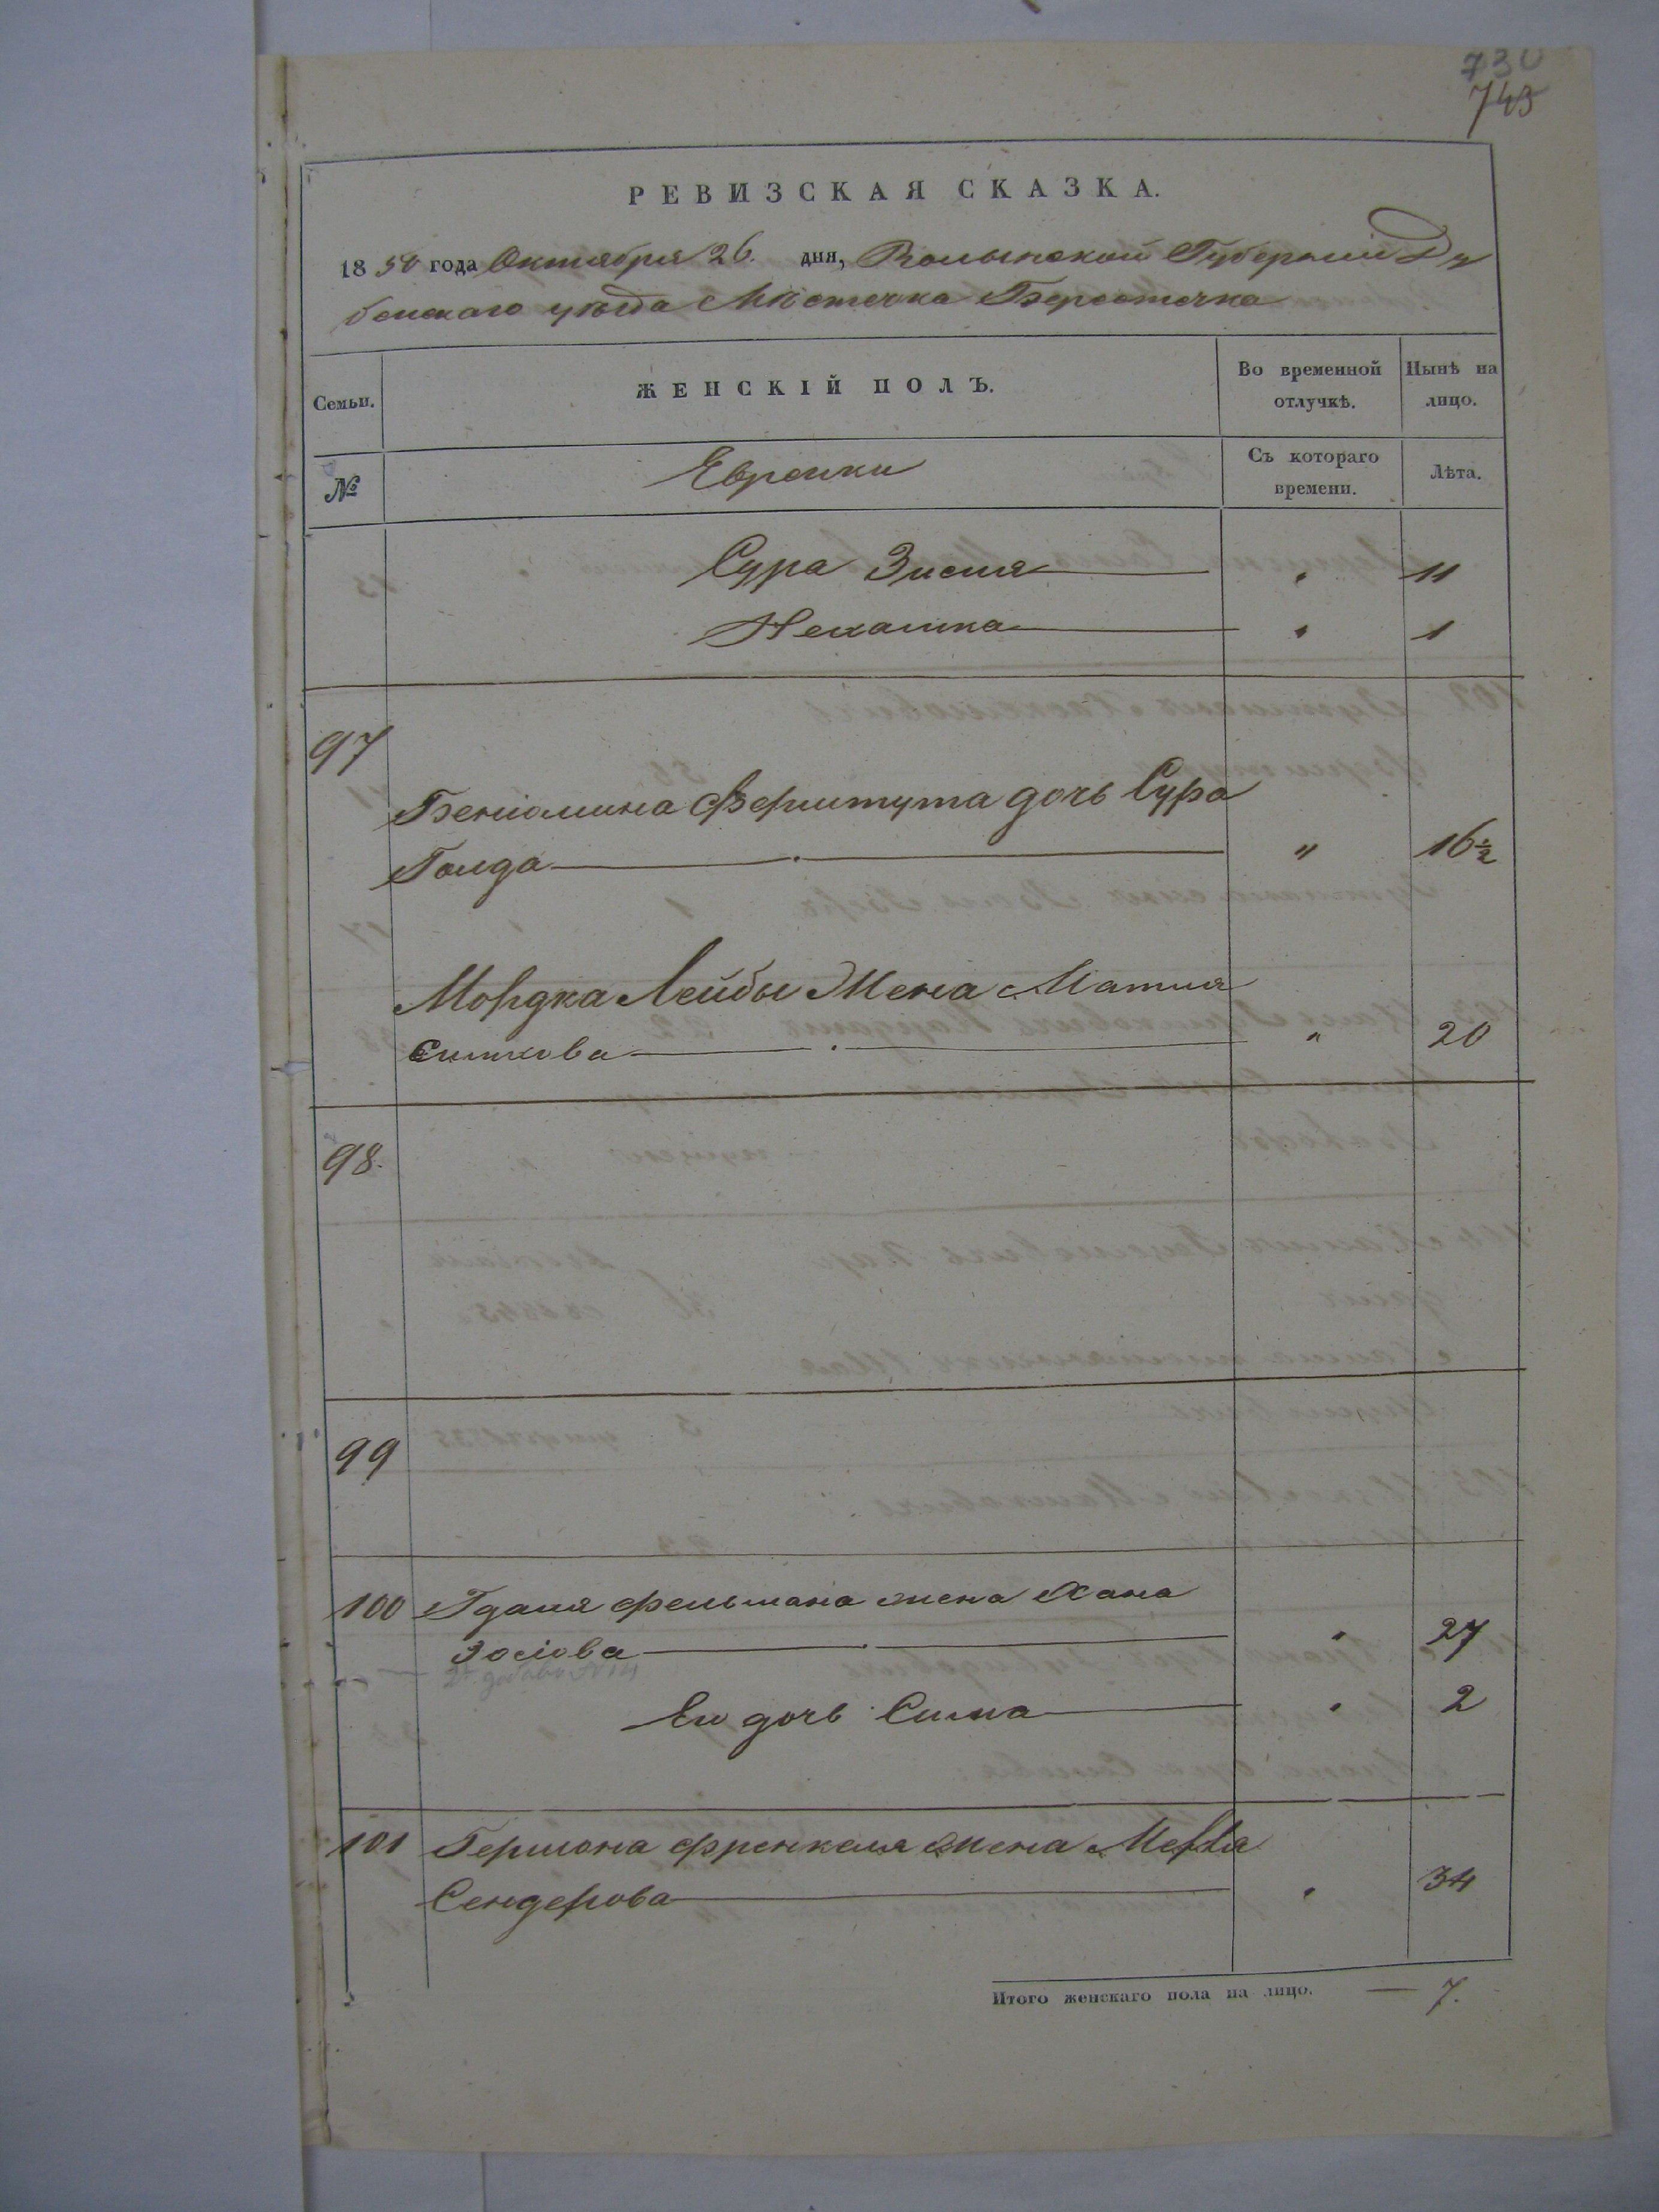 730
743
РЕВИЗСКАЯ СКАЗКА.
1850 года Октября 26. дня, Волынской Губернии Ду
бенскаго уѣзда Мѣстечка Берестечка
Семьи. ЖЕНСКІЙ ПОЛЪ. Во временной отлучкѣ. Нынѣ на лицо.
№ Еврейки Съ котораго времени. Лѣта.
Сура Зисля " 11
Нехамка " 1
97
Беніомина Ферштута дочь Сура
Голда " 16½
Мордка Лейбы Жена Матля
Симхова " 20
98.
99
100 Гдаля Фельмана жена Хана
Зослова " 27
Его дочь Сима " 2
101 Гершона Френкеля жена Мехля
Сендерова " 34
Итого женскаго пола на лицо. — 7.